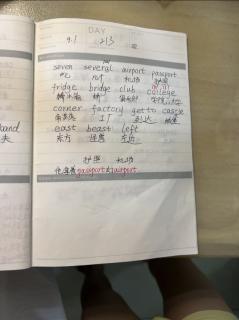 DAY
9.1 213
seven several airport passport
七 几个 机场 护照
fridge bridge club college
桥 俱乐部
corner factory get to castle
工厂 到达 城堡
east beast left
东方 怪兽 左边
护照 机场
passport airport